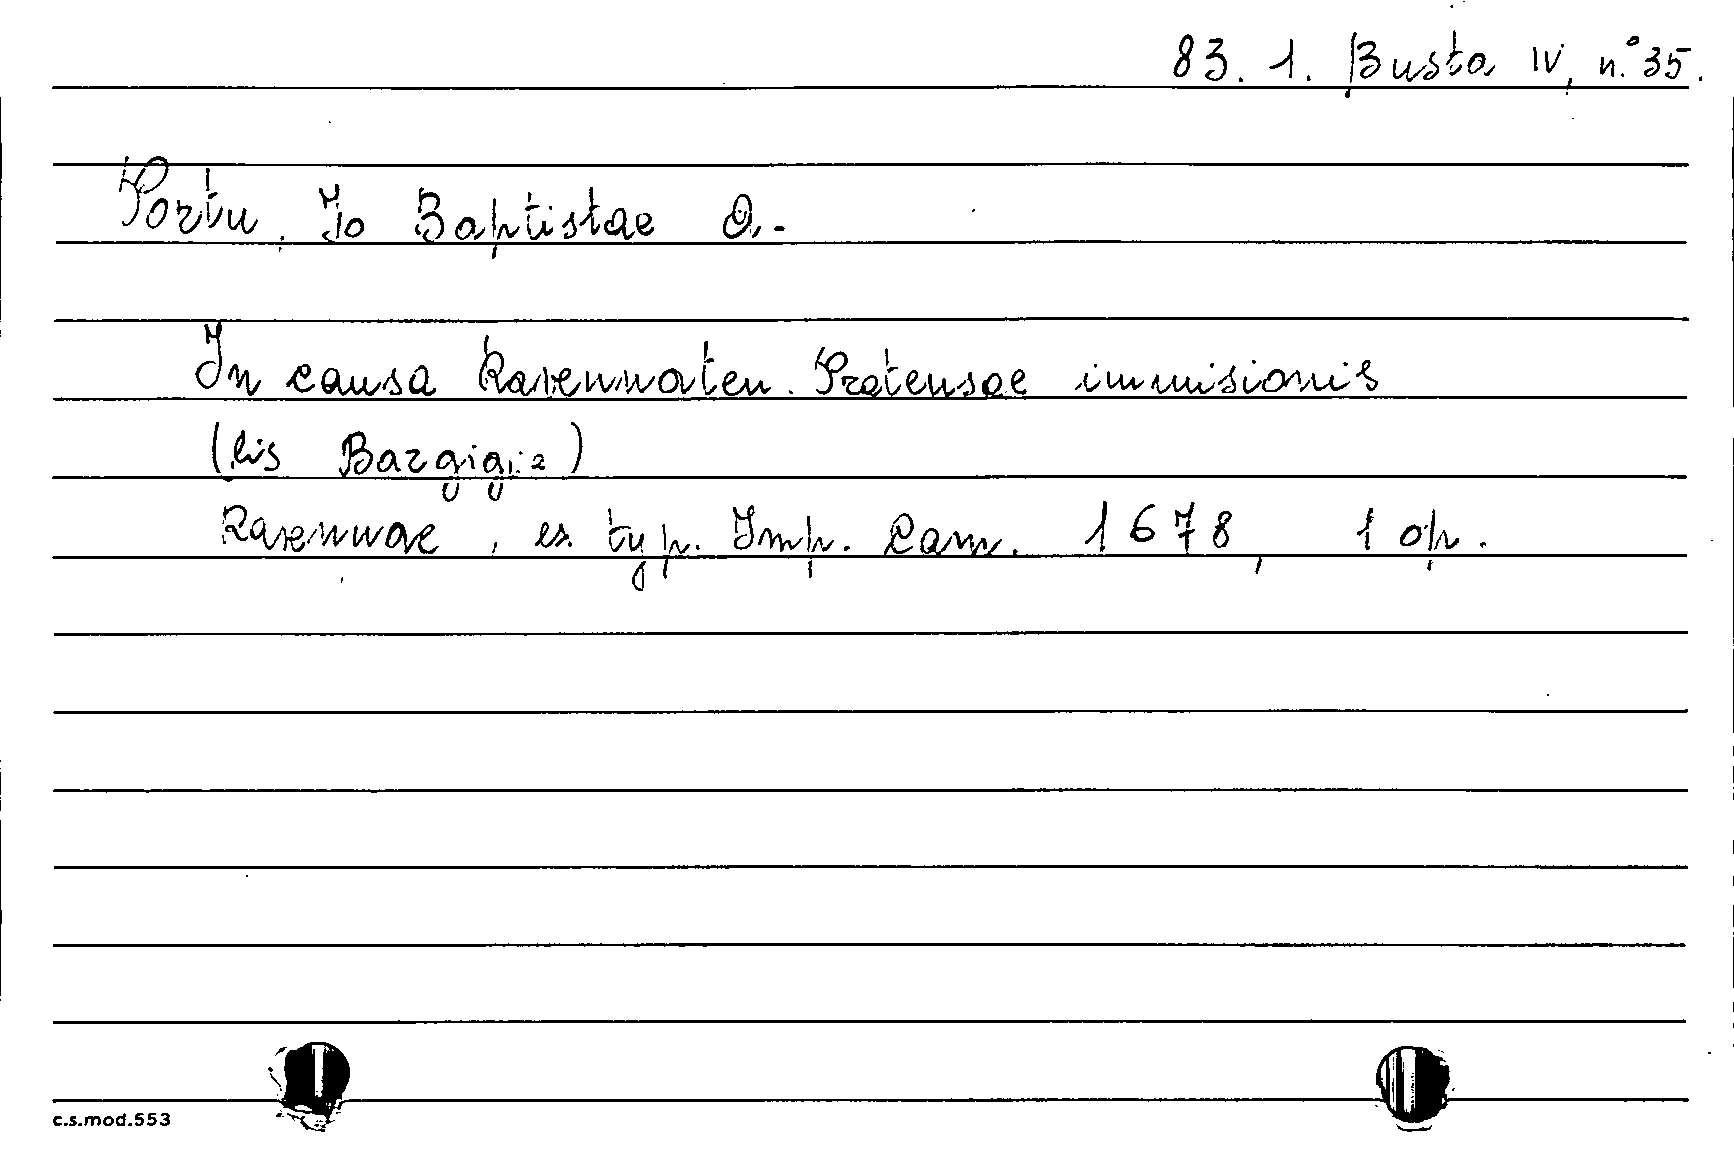 83. 1. Busta IV, n.° 35.
Portu, Jo Baptistae O.-
In causa Ravennaten. Pretensae immisionis
(lis Bargigia)
Ravennae, ex typ. Imp. Cam. 1678, 1 op.
c.s.mod.553